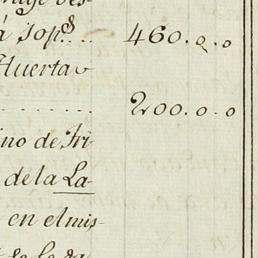 á 10 p.s .. 460.0.0
Huerta
........ 200.0.0
ino de Tri-
de la La-
en el mis-